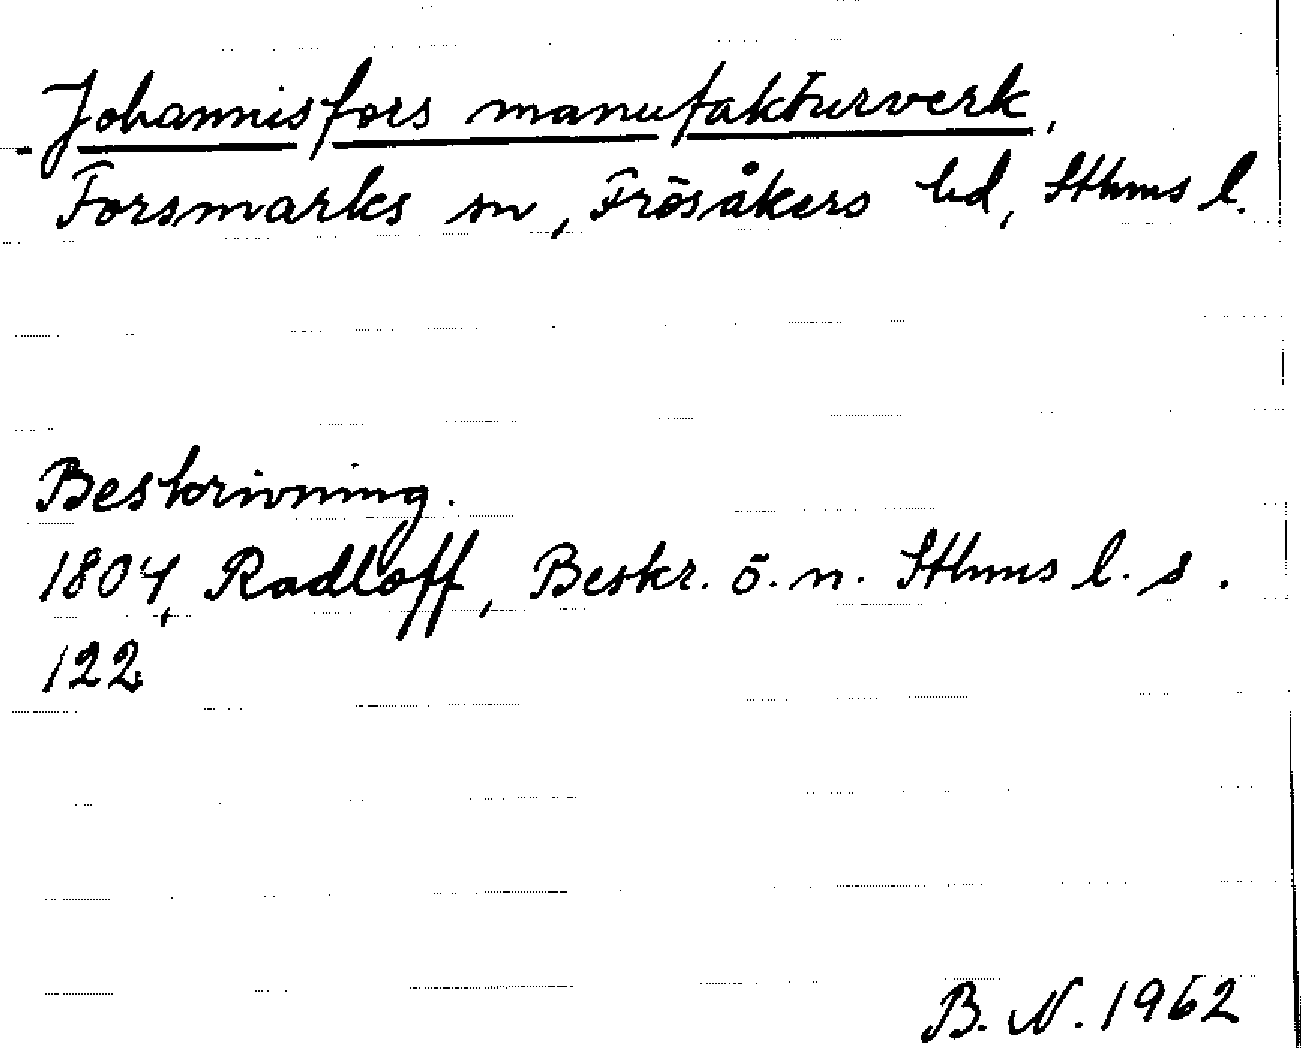 Johannisfors manufakturverk,
Forsmarks sn, Frösåkers hd, Sthms l.
Beskrivning.
1804, Radloff, Beskr. ö. n. Sthms l. s.
122
B. N. 1962